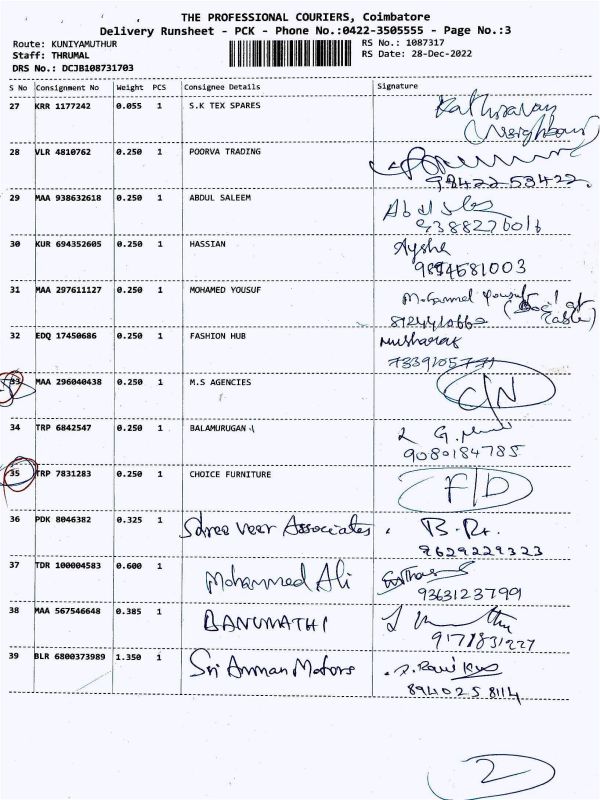 THE PROFESSIONAL COURIERS, Coimbatore
Delivery Runsheet - PCK - Phone No.:0422-3505555 - Page No.:3
Route: KUNIYAMUTHUR RS No.: 1087317
Staff: THRUMAL RS Date: 28-Dec-2022
DRS No.: DCJB108731703
S No Consignment No Weight PCS Consignee Details Signature
27 KRR 1177242 0.055 1 S.K TEX SPARES Kathiravan
(Neighbour)
28 VLR 4810762 0.250 1 POORVA TRADING
98422 53422
29 MAA 938632618 0.250 1 ABDUL SALEEM Abdul
9388276016
30 KUR 694352605 0.250 1 HASSIAN Aysha
9894681003
31 MAA 297611127 0.250 1 MOHAMED YOUSUF Mohammed Yousuf
32 EDQ 17450686 0.250 1 FASHION HUB Musharaf
33 MAA 296040438 0.250 1 M.S AGENCIES C/N
34 TRP 6842547 0.250 1 BALAMURUGAN
9080184785
35 TRP 7831283 0.250 1 CHOICE FURNITURE F/D
36 PDK 8046382 0.325 1 Shree Veer Associates
9629229323
37 TDR 100004583 0.600 1 Mohammed Ali
9363123799
38 MAA 567546648 0.385 1 BANUMATHI
9171831227
39 BLR 6800373989 1.350 1 Sri Amman Motors
8940258114
2